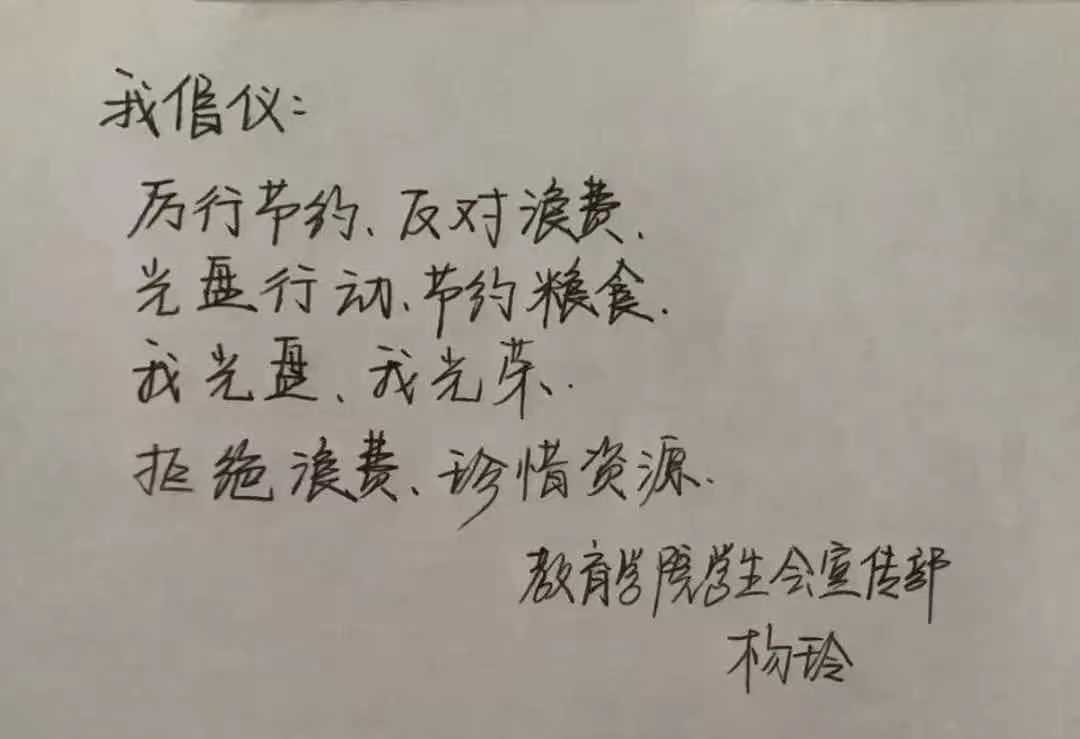 我倡仪：
厉行节约、反对浪费.
光盘行动、节约粮食.
我光盘、我光荣、.
拒绝浪费、珍惜资源.
教育学院学生会宣传部
杨玲